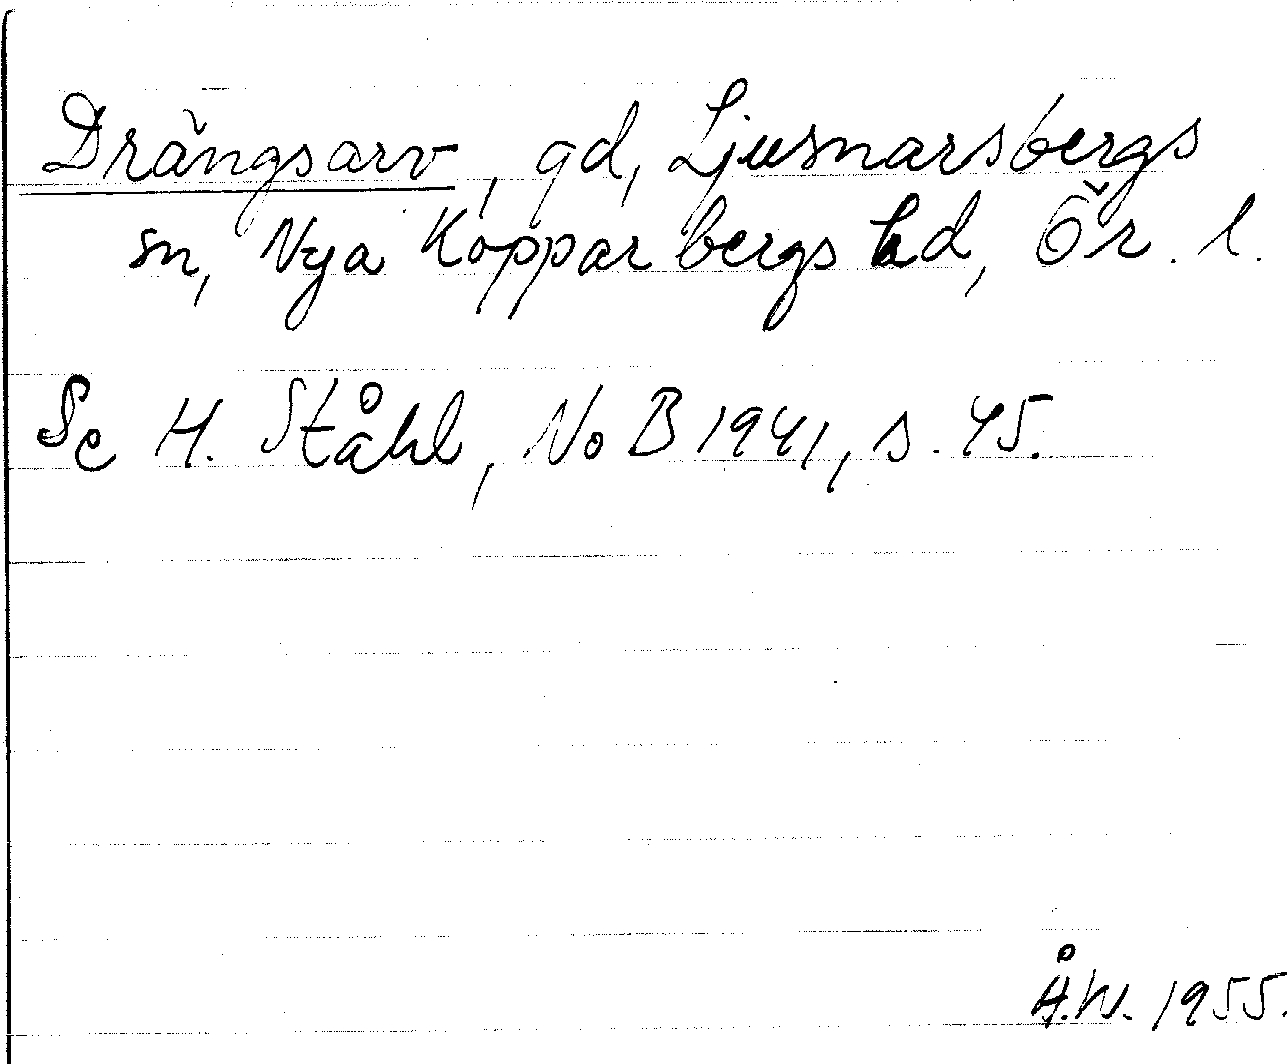 Drängsarv, gd, Ljusnarsbergs
sn, Nya Kopparbergs hd, Ör. l.
Se H. Ståhl, NoB 1941, s. 45.
Å.W. 1955.